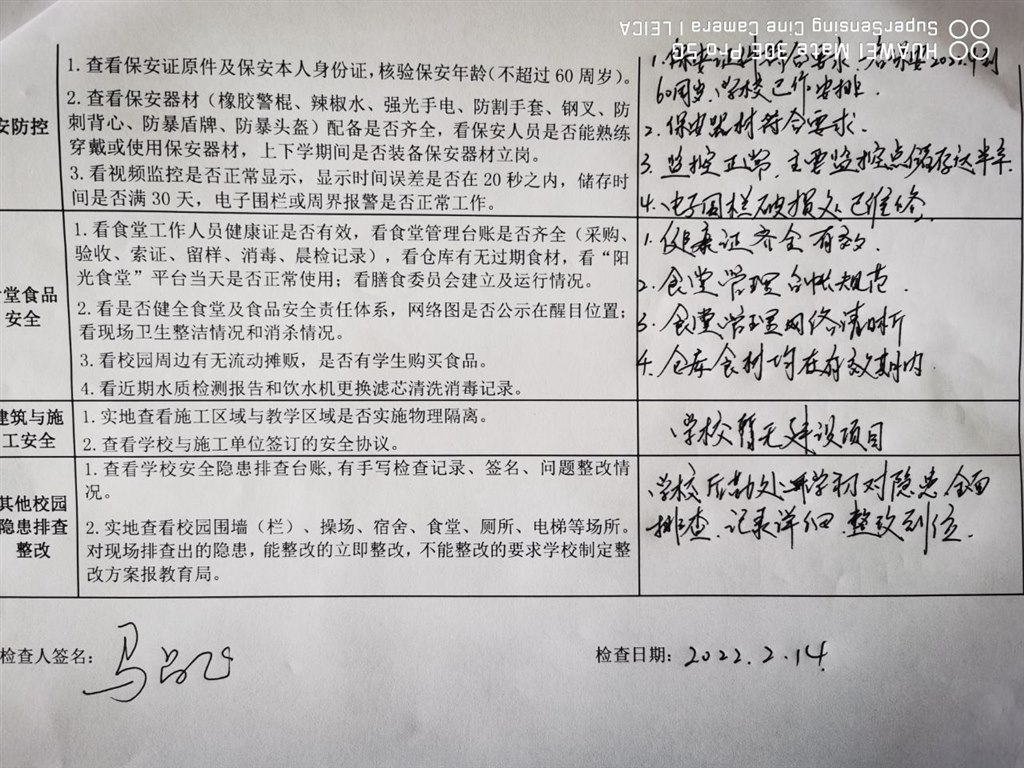 HUAWEI Mate 30E Pro 5G
SuperSensing Cine Camera | LEICA
安防控
1. 查看保安证原件及保安本人身份证，核验保安年龄（不超过 60 周岁）。
2. 查看保安器材（橡胶警棍、辣椒水、强光手电、防割手套、钢叉、防
刺背心、防暴盾牌、防暴头盔）配备是否齐全，看保安人员是否能熟练
穿戴或使用保安器材，上下学期间是否装备保安器材立岗。
3. 看视频监控是否正常显示，显示时间误差是否在 20 秒之内，储存时
间是否满 30 天，电子围栏或周界报警是否正常工作。
1. 保安证
60周岁，学校已作安排.
2. 保安器材符合要求.
3. 监控正常，主要监控点储存达半年.
4. 电子围栏破损处已维修.
堂食品
安全
1. 看食堂工作人员健康证是否有效，看食堂管理台账是否齐全（采购、
验收、索证、留样、消毒、晨检记录），看仓库有无过期食材，看“阳
光食堂”平台当天是否正常使用；看膳食委员会建立及运行情况。
2. 看是否健全食堂及食品安全责任体系，网络图是否公示在醒目位置；
看现场卫生整洁情况和消杀情况。
3. 看校园周边有无流动摊贩，是否有学生购买食品。
4. 看近期水质检测报告和饮水机更换滤芯清洗消毒记录。
1. 健康证齐全有效.
2. 食堂管理台帐规范.
3. 食堂管理网络清晰
4. 仓库食材均在有效期内
建筑与施
工安全
1. 实地查看施工区域与教学区域是否实施物理隔离。
2. 查看学校与施工单位签订的安全协议。
学校暂无建设项目
其他校园
隐患排查
整改
1. 查看学校安全隐患排查台账，有手写检查记录、签名、问题整改情
况。
2. 实地查看校园围墙（栏）、操场、宿舍、食堂、厕所、电梯等场所。
对现场排查出的隐患，能整改的立即整改，不能整改的要求学校制定整
改方案报教育局。
学校后勤处开学初对隐患全面
排查，记录详细，整改到位.
检查人签名：马
检查日期：2022.2.14